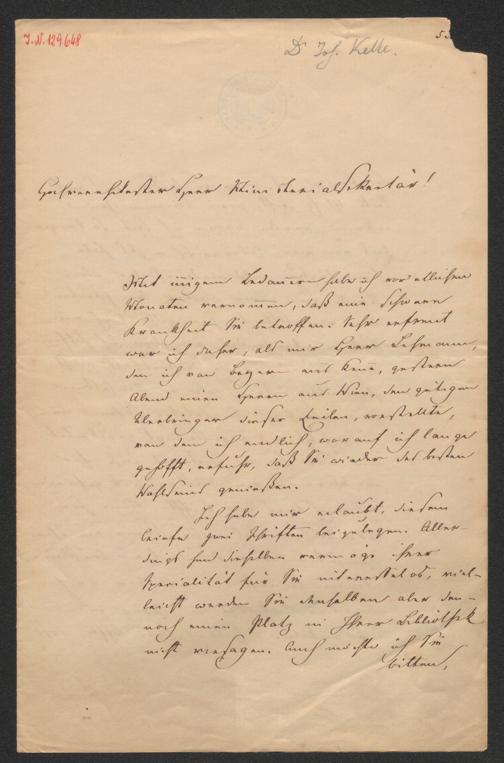 I. N. 129.648
Dr Joh. Kelle.
Hochverehrtester Herr Ministerialsekretär!
Mit innigem Bedauern habe ich vor etlichen
Monaten vernommen, daß eine schwere
Krankheit Sie betroffen. Sehr erfreut
war ich daher, als mir Herr Lehmann,
den ich von Bayern aus kenne, gestern
Abend einen Herrn aus Wien, den gütigen
Überbringer dieser Zeilen, vorstellte,
von dem ich endlich, worauf ich lange
gehofft, erfuhr, daß Sie wieder des besten
Wohlseins genießen.
Ich habe mir erlaubt, diesem
Briefe zwei Schriften beizulegen. Aller-
dings sind dieselben vermöge ihrer
Specialität für Sie interesselos, viel-
leicht werden Sie denselben aber den-
noch einen Platz in Ihrer Bibliothek
nicht versagen. Auch möchte ich Sie
bitten,